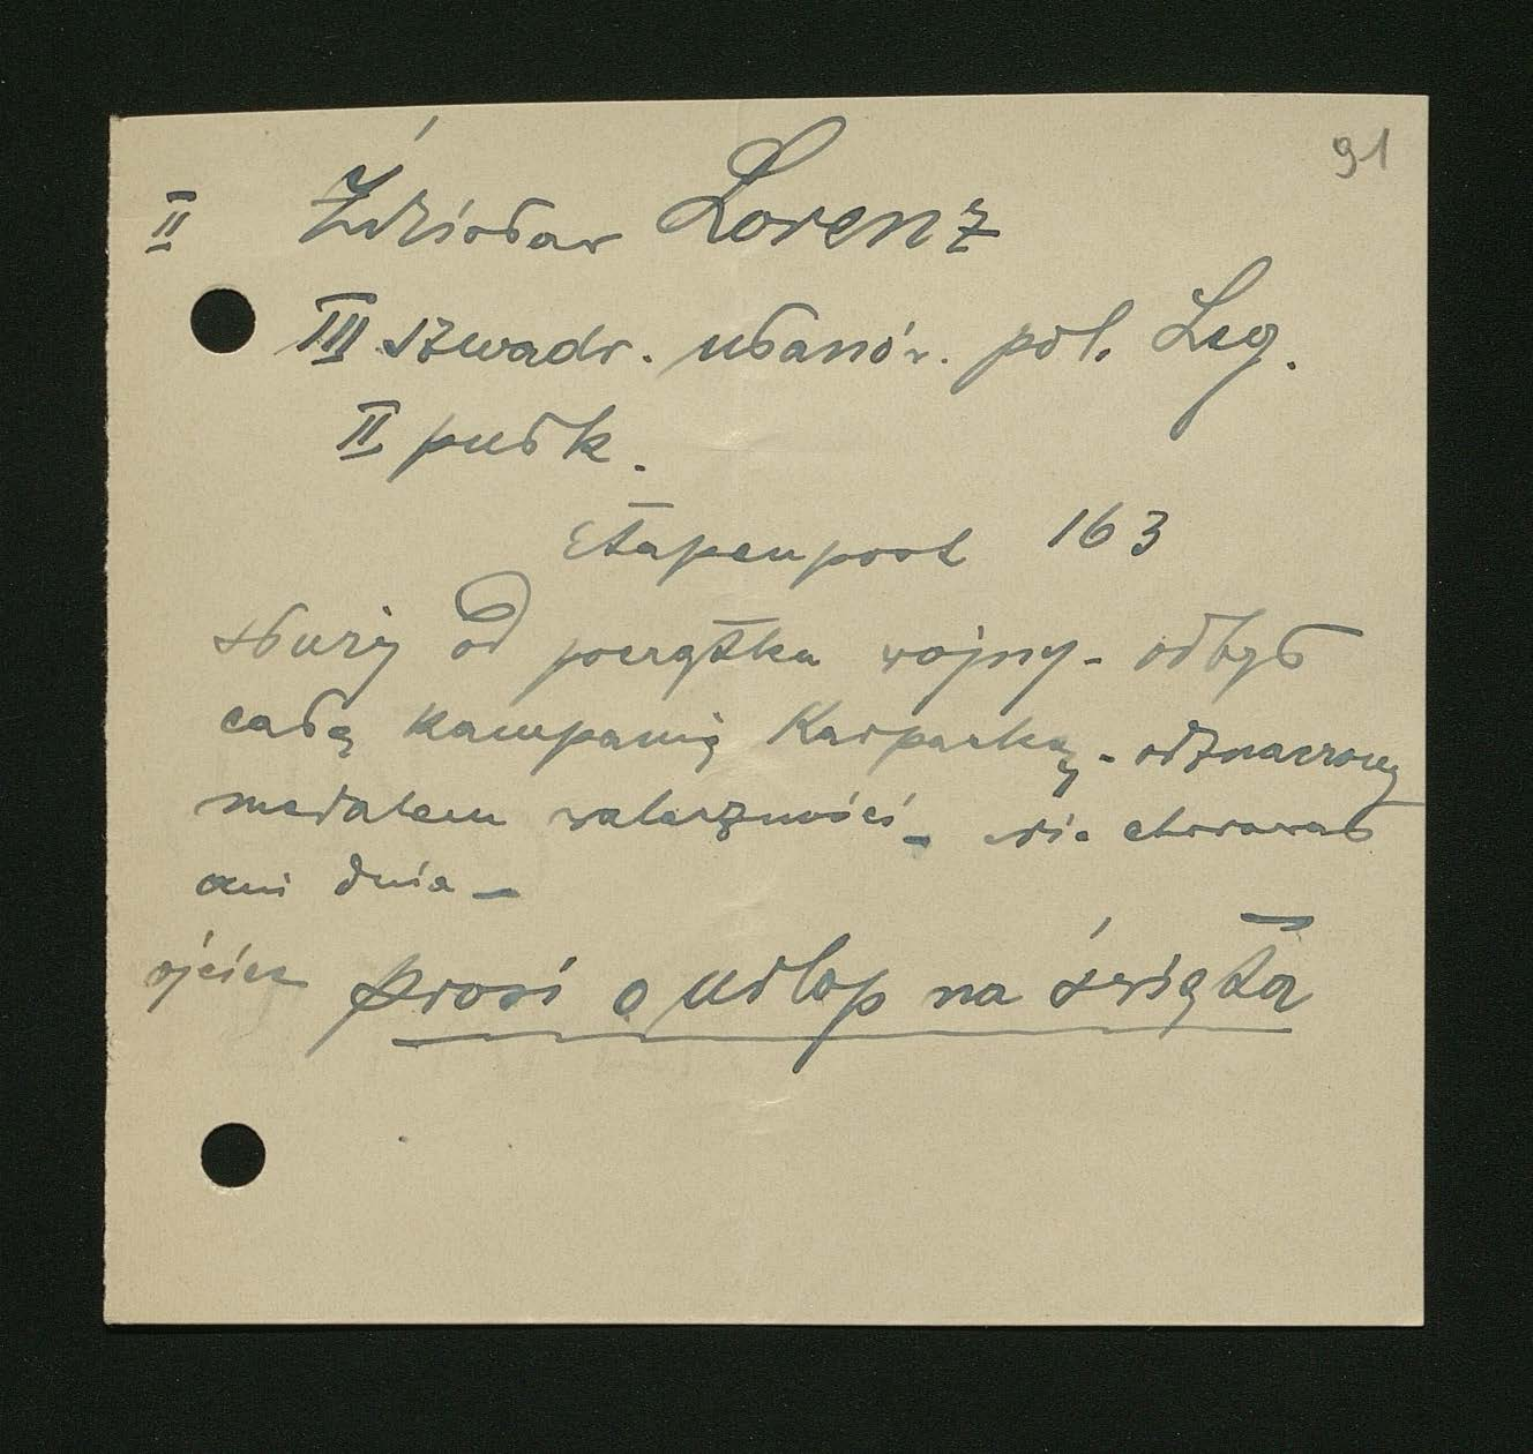 91
II Zdzisław Lorenz
III szwadr. ułanów. pol. Leg.
II pułk.
Etapenpost 163
służy od początku wojny - odbył
całą kampanię Karpacką - odznaczony
medalem waleczności - nie chorował
ani dnia -
ojciec prosi o urlop na święta